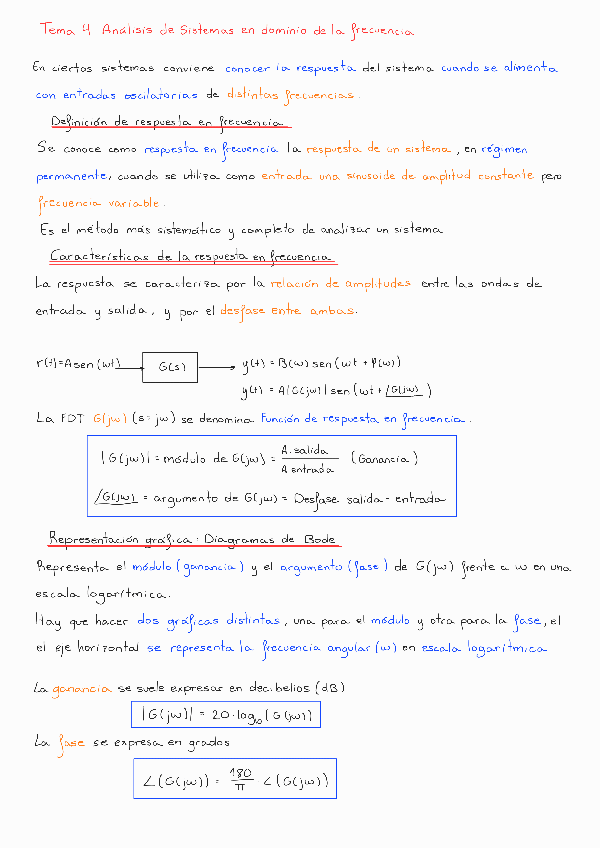 Tema 4 Análisis de Sistemas en dominio de la frecuencia
En ciertos sistemas conviene conocer la respuesta del sistema cuando se alimenta
con entradas oscilatorias de distintas frecuencias.
Definición de respuesta en frecuencia
Se conoce como respuesta en frecuencia la respuesta de un sistema, en régimen
permanente, cuando se utiliza como entrada una sinusoide de amplitud constante pero
frecuencia variable.
Es el método más sistemático y completo de analizar un sistema
Características de la respuesta en frecuencia
La respuesta se caracteriza por la relación de amplitudes entre las ondas de
entrada y salida, y por el desfase entre ambas.
r(t)=A sen(wt) G(s) y(t) = B(w) sen(wt + φ(w))
y(t) = A|G(jw)| sen(wt + /G(jw))
La FDT G(jw) (s=jw) se denomina Función de respuesta en frecuencia.
|G(jw)| = módulo de G(jw) = A.salida / A entrada (Ganancia)
/G(jw) = argumento de G(jw) = Desfase salida - entrada
Representación gráfica: Diagramas de Bode
Representa el módulo (ganancia) y el argumento (fase) de G(jw) frente a w en una
escala logarítmica.
Hay que hacer dos gráficas distintas, una para el módulo y otra para la fase, el
el eje horizontal se representa la frecuencia angular (w) en escala logarítmica
La ganancia se suele expresar en decibelios (dB)
|G(jw)| = 20·log₁₀(G(jw))
La fase se expresa en grados
∠(G(jw)) = 180/π ∠(G(jw))